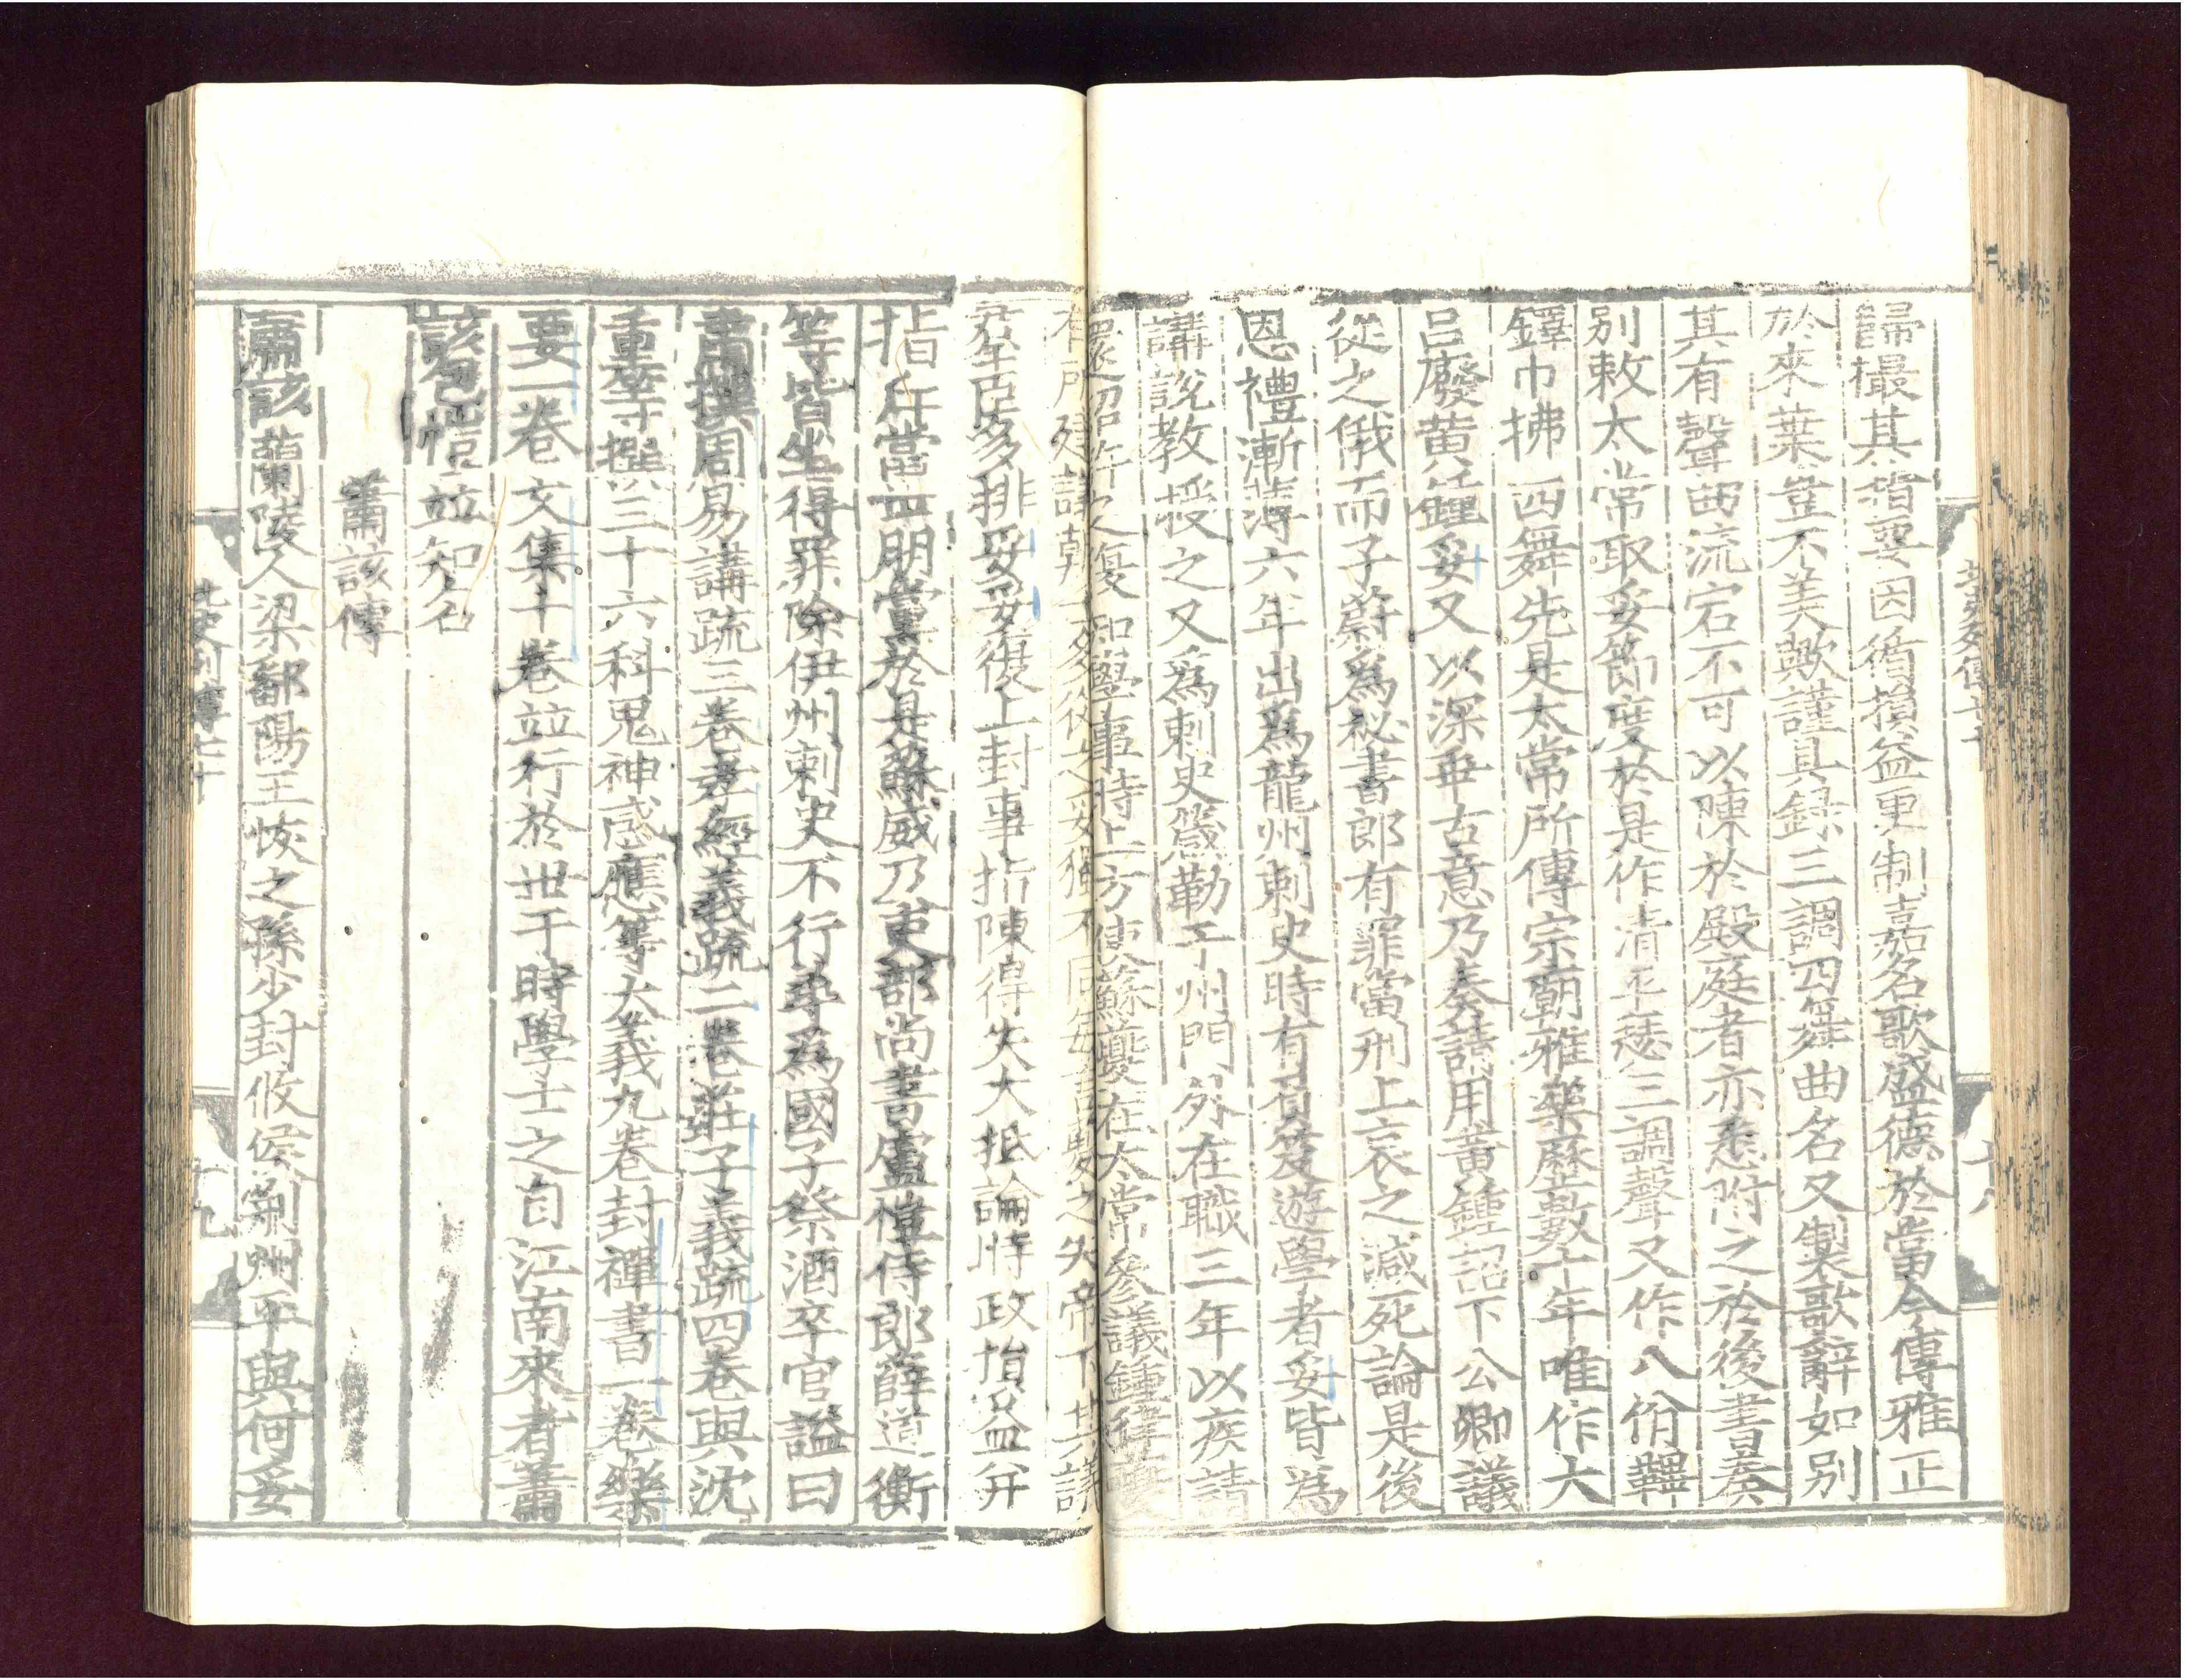 歸撮其指要因循損益更制嘉名歌盛德於當今傳雅正
於來葉豈不美歟謹具録三調四舞曲名又製歌辭如別
其有聲曲流宕不可以陳於殿庭者亦悉附之於後書奏
別敕太常取妥節度於是作清平瑟三調聲又作八佾鞞
鐸巾拂四舞先是太常所傳宗廟雅樂歷數十年唯作大
呂廢黄鍾妥又以深乖古意乃奏請用黄鍾詔下公卿議
從之俄而子蔚爲祕書郎有罪當刑上哀之減死論是後
恩禮漸薄六年出爲龍州刺史時有負笈遊學者妥皆爲
講說教授之又爲刺史箴勒于州門外在職三年以疾請
還詔許之復知學事時上方使蘇夔在太常參議鍾律夔
有所建議朝士多從之妥獨不同每言夔之失帝下其議
羣臣多排妥妥復上封事指陳得失大抵論時政損益并
指斥當世朋黨於是蘇威乃吏部尚書盧愷侍郎薛道衡
等皆坐得罪除伊州刺史不行尋爲國子祭酒卒官謚曰
肅撰周易講疏三巻孝經義疏二巻莊子義疏四巻與沈
重等撰三十六科鬼神感應等大義九巻封禪書一巻樂
要一巻文集十巻並行於世于時學士之自江南來者蕭
該包愷並知名
蕭該傳
蕭該蘭陵人梁鄱陽王恢之孫少封攸侯荆州平與何妥
北史列傳七十
十九